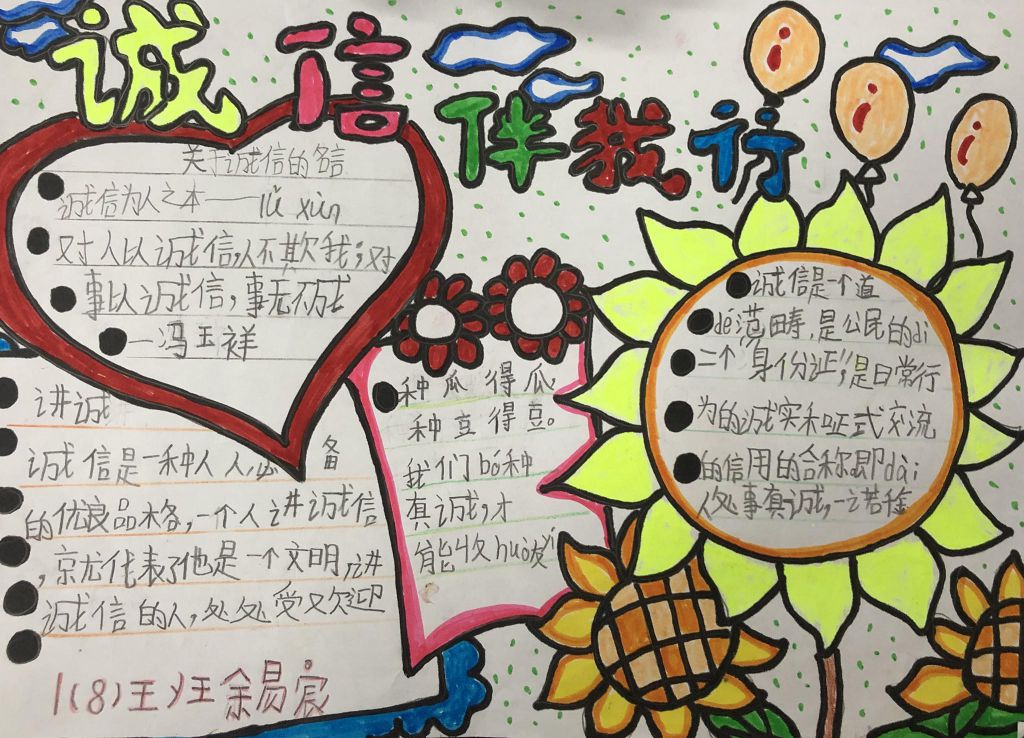 诚信伴我行
关于诚信的名言
诚信为人之本——lǔ xùn
对人以诚信,人不欺我;对
事以诚信,事无不成
—冯玉祥
讲诚
诚信是一种人人必备
的优良品格,一个人讲诚信
,就代表了他是一个文明,讲
诚信的人,处处受欢迎
1(8)班余易宸
种瓜得瓜
种豆得豆。
我们bō种
真诚,才
能收huò友yì
诚信是一个道
dé范畴,是公民的dì
二个"身份证",是日常行
为的诚实和正式交流
的信用的合称即dài
人处事真诚,一诺